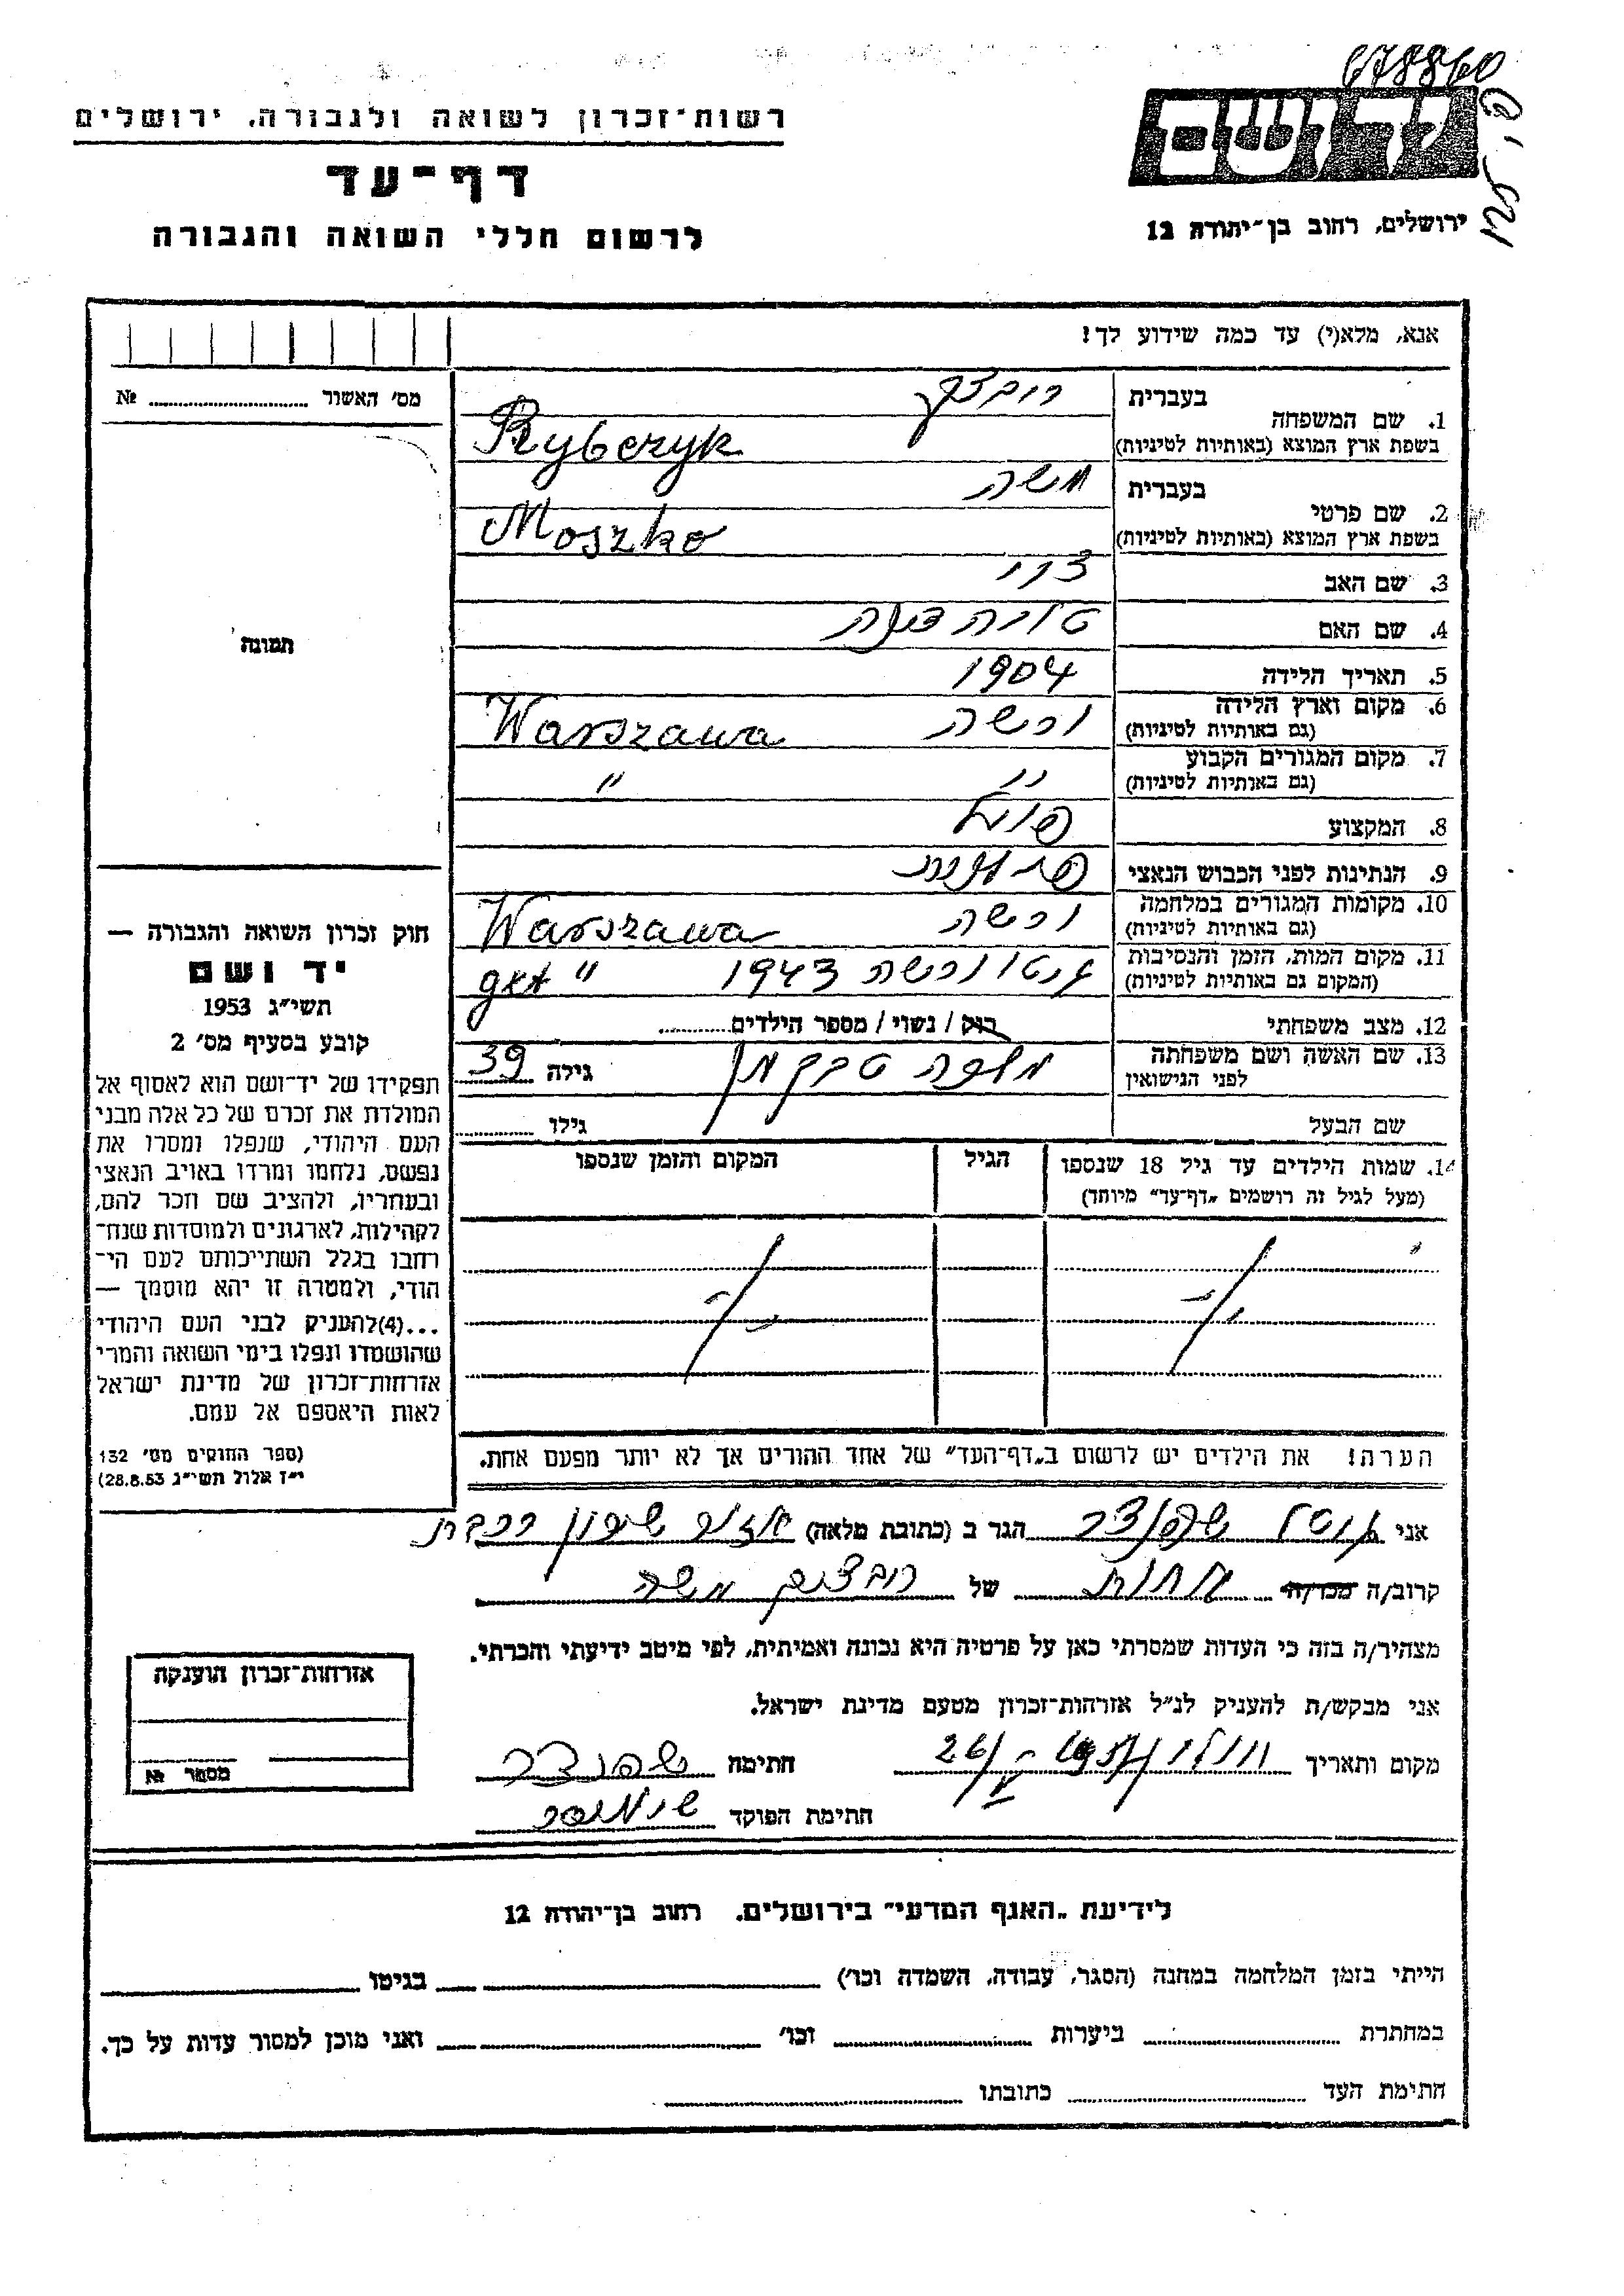 678860
יד ושם
ירושלים, רחוב בן־יהודה 12
רשות־זכרון לשואה ולגבורה, ירושלים
דף־עד
לרשום חללי השואה והגבורה
אנא, מלא(י) עד כמה שידוע לך!
מס׳ האשור ........ №
תמונה
חוק זכרון השואה והגבורה —
יד ושם
תשי״ג 1953
קובע בסעיף מס׳ 2
תפקידו של יד־ושם הוא לאסוף אל
המולדת את זכרם של כל אלה מבני
העם היהודי, שנפלו ומסרו את
נפשם, נלחמו ומרדו באויב הנאצי
ובעוזריו, ולהציב שם וזכר להם,
לקהילות, לארגונים ולמוסדות שנח־
רבו בגלל השתייכותם לעם הי־
הודי, ולמטרה זו יהא מוסמך —
...(4)להעניק לבני העם היהודי
שהושמדו ונפלו בימי השואה והמרי
אזרחות־זכרון של מדינת ישראל
לאות היאספם אל עמם.
(ספר החוקים מס׳ 132
י״ז אלול תשי״ג 28.8.53)
בעברית
1. שם המשפחה
בשפת ארץ המוצא (באותיות לטיניות) Rybczyk
בעברית משה
2. שם פרטי
בשפת ארץ המוצא (באותיות לטיניות) Moszko
3. שם האב
4. שם האם
5. תאריך הלידה 1904
6. מקום וארץ הלידה ורשה Warszawa
(גם באותיות לטיניות)
7. מקום המגורים הקבוע " "
(גם באותיות לטיניות)
8. המקצוע פועל
9. הנתינות לפני הכבוש הנאצי פולנית
10. מקומות המגורים במלחמה ורשה Warszawa
(גם באותיות לטיניות)
11. מקום המות, הזמן והנסיבות גטו ורשה 1943 " get
(המקום גם באותיות לטיניות)
12. מצב משפחתי רוק / נשוי / מספר הילדים........
13. שם האשה ושם משפחתה גילה 39
לפני הנישואין
שם הבעל גילו ........
14. שמות הילדים עד גיל 18 שנספו הגיל המקום והזמן שנספו
(מעל לגיל זה רושמים „דף־עד״ מיוחד)
הערה! את הילדים יש לרשום ב„דף־העד״ של אחד ההורים אך לא יותר מפעם אחת.
אני הגר ב (כתובת מלאה)
קרוב/ה מכר/ה אחות של משה
מצהיר/ה בזה כי העדות שמסרתי כאן על פרטיה היא נכונה ואמיתית, לפי מיטב ידיעתי והכרתי.
אני מבקש/ת להעניק לנ״ל אזרחות־זכרון מטעם מדינת ישראל.
מקום ותאריך חולון חתימה
חתימת הפוקד
אזרחות־זכרון הוענקה
מספר №
לידיעת „האגף המדעי״ בירושלים. רחוב בן־יהודה 12
הייתי בזמן המלחמה במחנה (הסגר, עבודה, השמדה וכו׳) בגיטו
במחתרת ביערות וכו׳ ואני מוכן למסור עדות על כך.
חתימת העד כתובתו